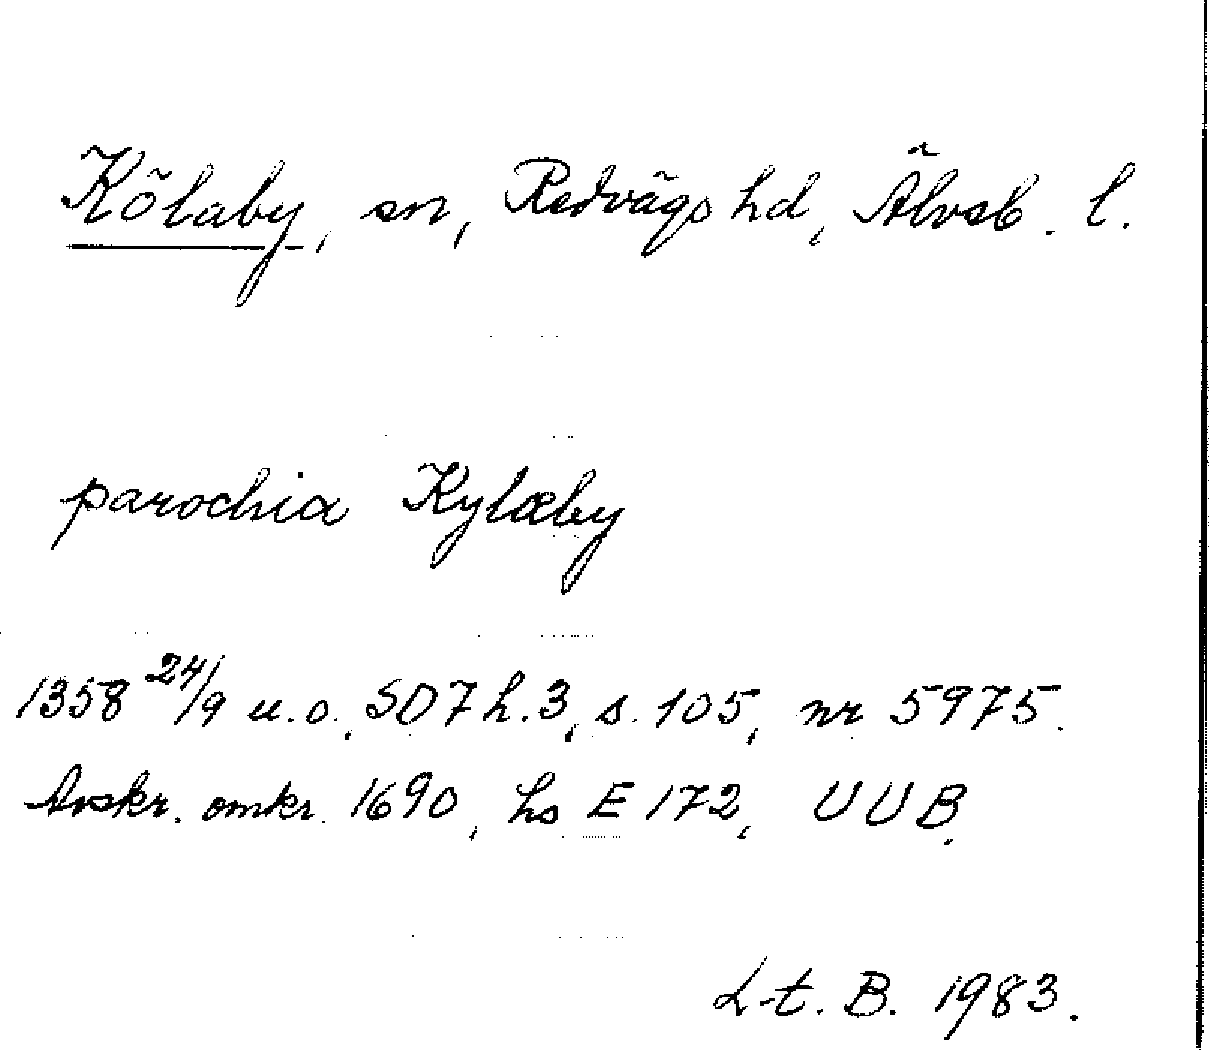 Kölaby, sn, Redvägs hd, Älvsb. l.
parochia Kylæby
1358 24/9 u.o., SD 7 h. 3, s. 105, nr 5975.
Avskr. omkr. 1690, hs E 172, UUB.
L-t. B. 1983.